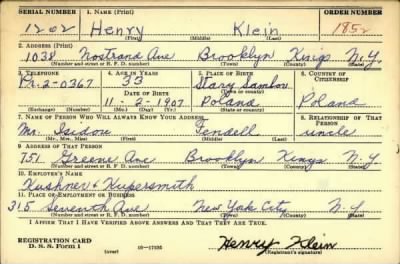 SERIAL NUMBER 1. NAME (Print) ORDER NUMBER
1202 Henry Klein 1852
(First) (Middle) (Last)
2. ADDRESS (Print)
1038 Nostrand Ave Brooklyn Kings N.Y.
(Number and street or R. F. D. number) (Town) (County) (State)
3. TELEPHONE 4. AGE IN YEARS 5. PLACE OF BIRTH 6. COUNTRY OF CITIZENSHIP
Pr. 2-0367 33 Stary Sambor
DATE OF BIRTH (Town or county)
11-2-1907 Poland Poland
(Exchange) (Number) (Mo.) (Day) (Yr.) (State or country)
7. NAME OF PERSON WHO WILL ALWAYS KNOW YOUR ADDRESS 8. RELATIONSHIP OF THAT PERSON
Mr. Isidor Fendell uncle
(Mr., Mrs., Miss) (First) (Middle) (Last)
9. ADDRESS OF THAT PERSON
751 Greene Ave Brooklyn Kings N.Y
(Number and street or R. F. D. number) (Town) (County) (State)
10. EMPLOYER'S NAME
Kushner & Kupersmith
11. PLACE OF EMPLOYMENT OR BUSINESS
315 Seventh Ave New York City N.Y
(Number and street or R. F. D. number) (Town) (County) (State)
I AFFIRM THAT I HAVE VERIFIED ABOVE ANSWERS AND THAT THEY ARE TRUE.
REGISTRATION CARD
D. S. S. Form 1 (over) 16—17105 Henry Klein
(Registrant's signature)